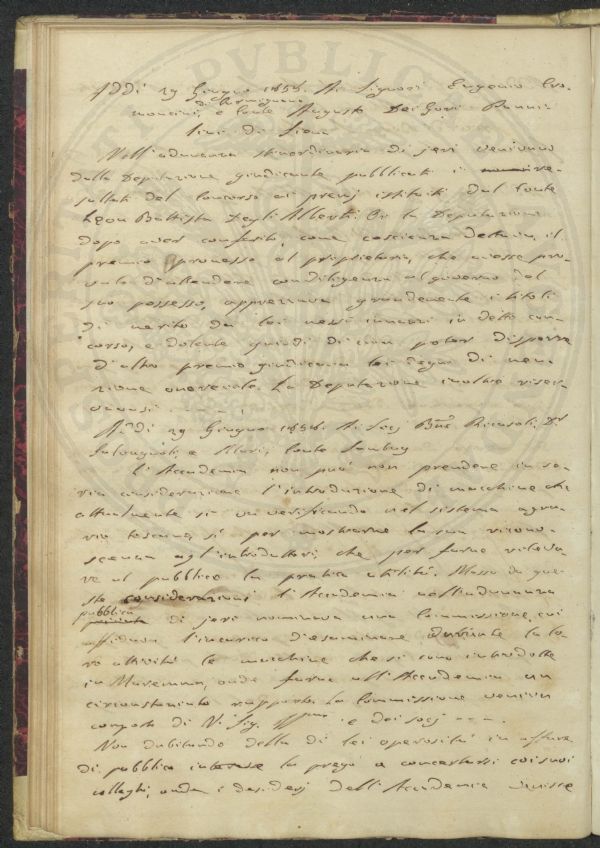 Addì 29 Giugno 1858. Ai Signori Eugenio
e Conte Augusto De Gori Pannilini
di Siena
Nell'adunanza straordinaria di jeri venivano
dalla Deputazione giudicante pubblicati i
sultati del concorso ai premj istituiti dal Conte
Leon Battista Degli Alberti. La Deputazione
dopo aver conferito, come coscienza dettava, il
premio promesso al proprietario, che avesse pro-
vato d'attendere con diligenza al governo del
suo possesso, apprezzava grandemente i titoli
di merito da lei messi innanzi in detto con-
corso, e dolente quindi di non poter disporre
d'altro premio giudicava lei degno di men-
zione onorevole. La Deputazione inoltre riser-
vavasi - - - -
Addì 29 Giugno 1858. Ai Socj Bne Ricasoli, Dr
Salvagnoli, e Conte Sambuy
L'Accademia non può non prendere in se-
ria considerazione l'introduzione di macchine che
attualmente si va verificando nel sistema agra-
rio toscano, sì per mostrarne la sua ricono-
scenza agl'introduttori, che per farne rileva-
re al pubblico la pratica utilità. Mossa da que-
ste considerazioni l'Accademia nell'adunanza
pubblica
di jeri nominava una Commissione, cui
affidava l'incarico d'esaminare durante la lo-
ro attività le macchine che si sono introdotte
in Maremma, onde farne all'Accademia un
circonstanziato rapporto. La Commissione veniva
composta di V. Sig. e dei socj - - -
Non dubitando della di lei operosità in affare
di pubblico interesse la prego a concertarsi coi suoi
colleghi, onde i desiderj dell'Accademia